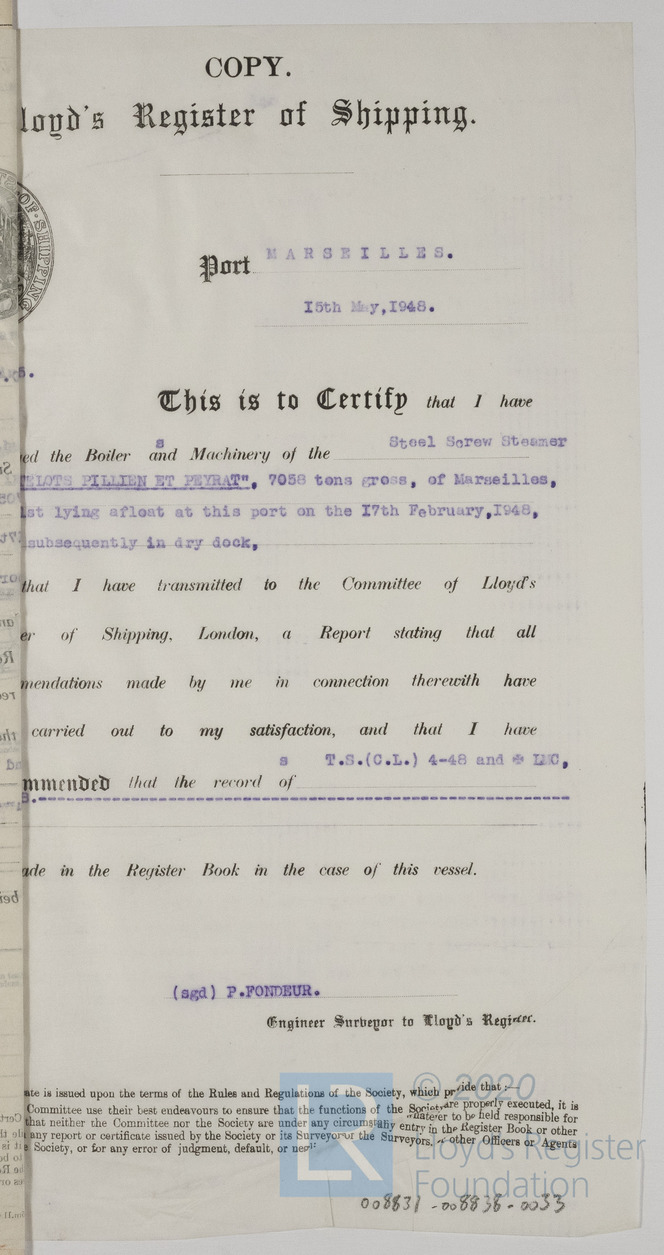 COPY.
loyd's Register of Shipping.
OF·SHIPPING
Port MARSEILLES.
15th May,1948.
This is to Certify that I have
s
Steel Screw Steamer
ed the Boiler and Machinery of the
ELOTS PILLIEN ET PEYRAT", 7058 tons gross, of Marseilles,
st lying afloat at this port on the 17th February,1948,
subsequently in dry dock,
that I have transmitted to the Committee of Lloyd's
er of Shipping, London, a Report stating that all
mendations made by me in connection therewith have
carried out to my satisfaction, and that I have
s T.S.(C.L.) 4-48 and ✠ LMC,
mmended that the record of
ade in the Register Book in the case of this vessel.
(sgd) P.FONDEUR.
Engineer Surveyor to Lloyd's Register.
ate is issued upon the terms of the Rules and Regulations of the Society, which provide that :—
Committee use their best endeavours to ensure that the functions of the Society are properly executed, it is
that neither the Committee nor the Society are under any circumstances whatever to be held responsible for
any report or certificate issued by the Society or its Surveyors or the entry in the Register Book or other
Society, or for any error of judgment, default, or negl Surveyors, or other Officers or Agents
© 2020
LR
Lloyd's Register
Foundation
008831-008838-0033